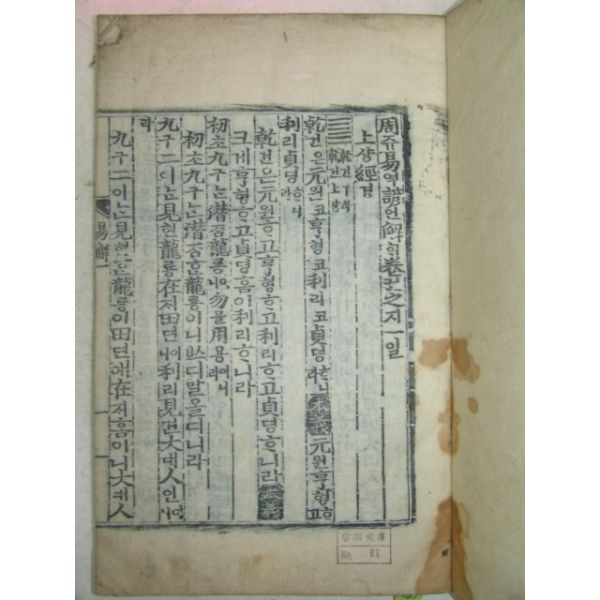 周쥬易역諺언解ᄒᆡ卷권之지一일
上샹經경
乾건下하
乾건上샹
乾건은元원코亨형코利리코貞뎡ᄒᆞ니라 本義 元원亨형ᄒᆞ고
利리貞뎡ᄒᆞ니라
乾건은元원ᄒᆞ고亨형ᄒᆞ고利리ᄒᆞ고貞뎡ᄒᆞ니라 本義
크게亨형ᄒᆞ고貞뎡홈이利리ᄒᆞ니라
初초九구ᄂᆞᆫ潛줌龍룡이니勿물用용이니라
初초九구ᄂᆞᆫ潛줌ᄒᆞᆫ龍룡이니ᄡᅳ디말올띠니라
九구二이ᄂᆞᆫ見현龍룡在ᄌᆡ田뎐이니利리見견大대人인이니
라
九구二이ᄂᆞᆫ見현ᄒᆞᆫ龍룡이田뎐애在ᄌᆡ홈이니大대人
易解
No. 61